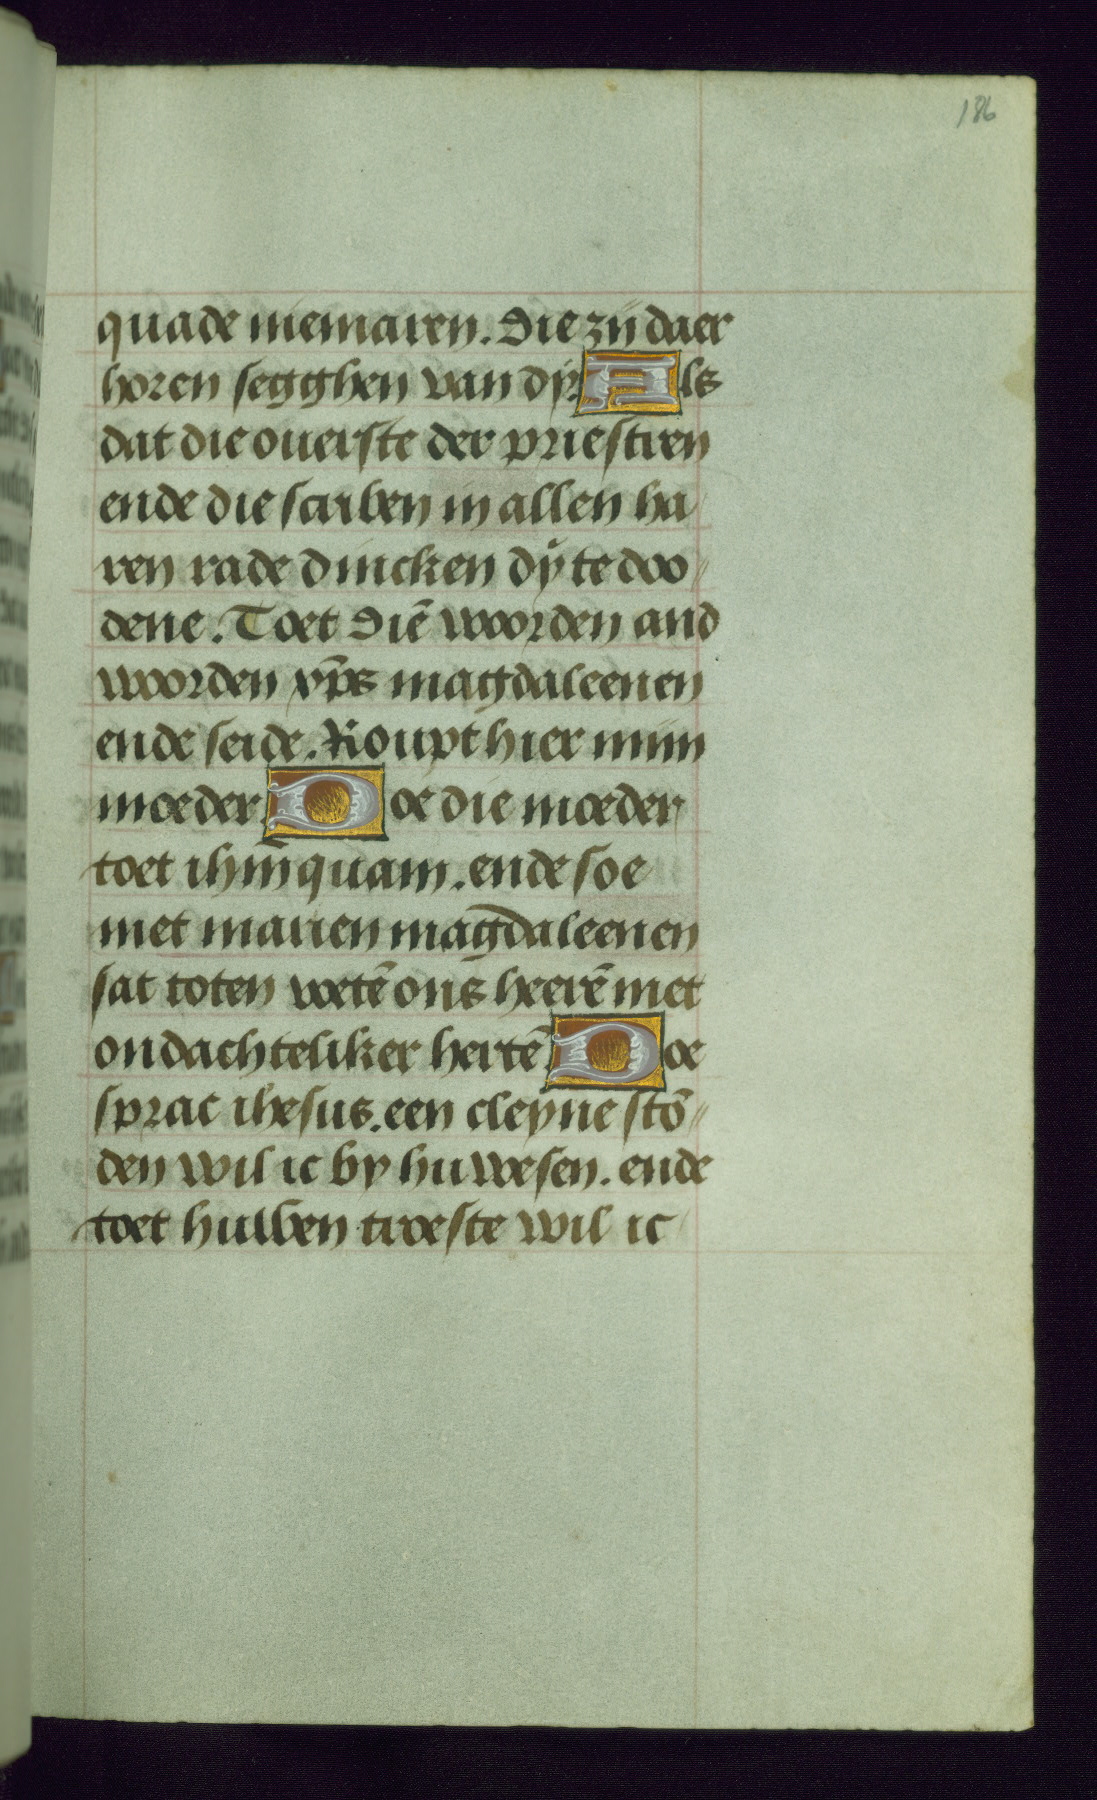 186
quade niemaren. Die zij daer
horen segghen van dy. Als
dat die ouerste der priestren
ende die scriben in allen ha
ren rade dincken dy te doo
dene. Toet diē woorden and
woorden xp̄s magdaleenen
ende seide. Roupt hier mijn
moeder. Doe die moeder
toet ihm̄ quam. ende soe
met marien magdaleenen
sat toten voetē ons heerē met
ondachteliker hertē. Doe
sprac ihesus. een cleyne stō
den wil ic by hu wesen. ende
toet hulben troeste wil ic